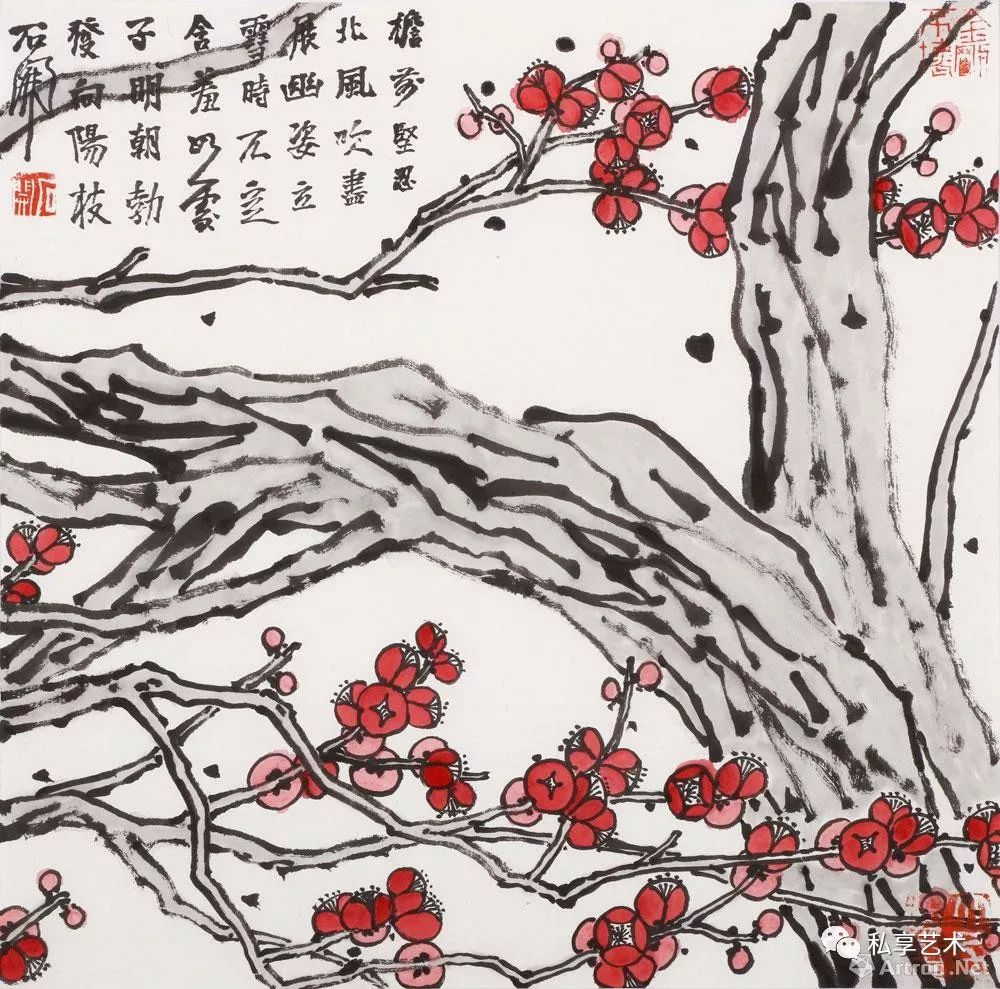 檐前堅忍
北風吹盡
展幽姿立
雪時不
含羞如處
子明朝勃
發向陽枝
石開
金剛不壞
私享艺术
Artron.Net